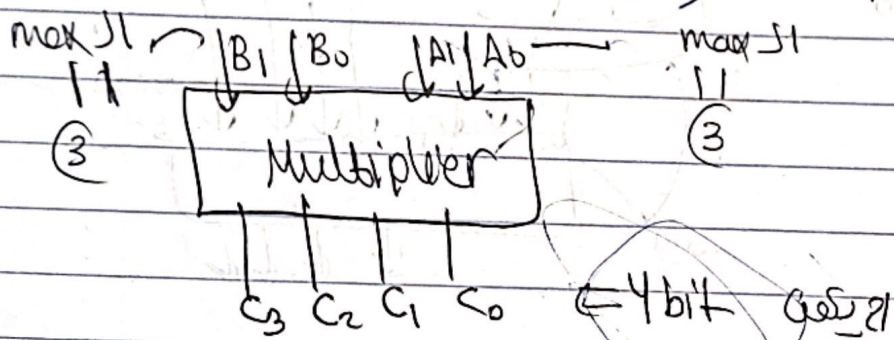 max ال B₁ B₀ A₁ A₀ max ال
11 11
③ Multiplier ③
C₃ C₂ C₁ C₀ ← 4 bit